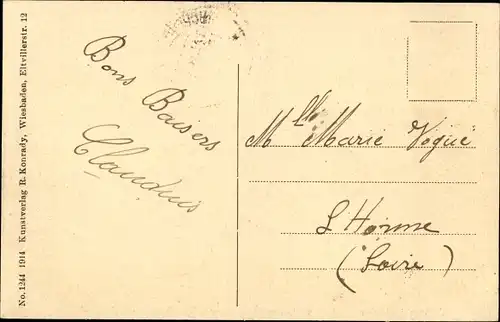 No. 1244 1914 Kunstverlag R. Konrady, Wiesbaden, Eltvillerstr. 12
Bons Baisers
Claudius
Mlle Marie Vogue
L'Horme
(Loire)